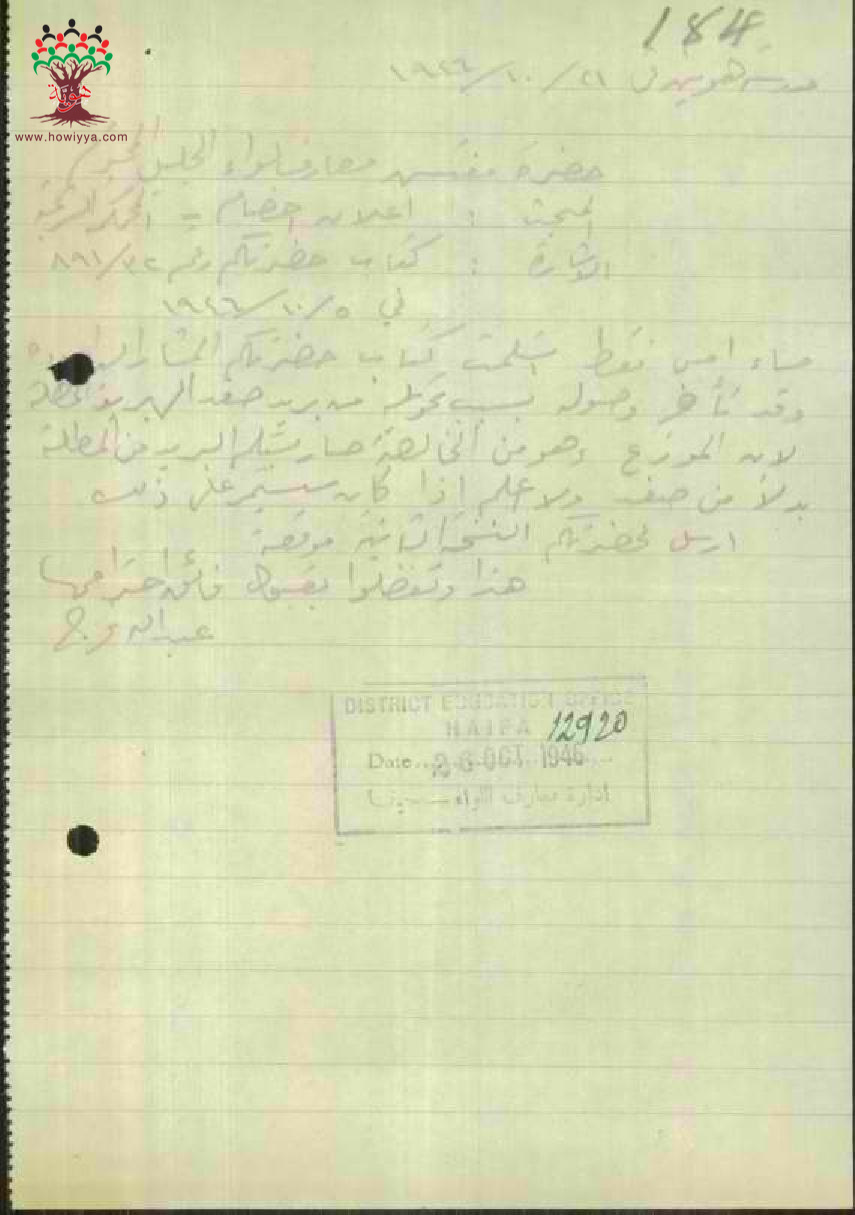 184
هوية
www.howiyya.com
مدرسة هونين في ٢١/١٠/١٩٤٦
حضرة مفتش معارف لواء الجليل المحترم
المبحث : اعلان
الاشارة : كتاب حضرتكم رقم ٣٢/٨٩١
في ٥/١٠/١٩٤٦
مساء امس فقط استلمت كتاب حضرتكم المشار اليه
وقد تأخر وصوله بسبب تحويله من بريد صفد الى بريد المطلة
لان الموزع وهو من الخالصة صار يتسلم البريد من المطلة
بدلا من صفد ولا اعلم اذا كان سيستمر على ذلك
ارسل لحضرتكم النسخة الثانية موقعة
هذا وتفضلوا بقبول فائق احترامي
عبدالله
DISTRICT EDUCATION OFFICE
HAIFA 12920
Date 26 OCT 1946
ادارة معارف اللواء حيفا